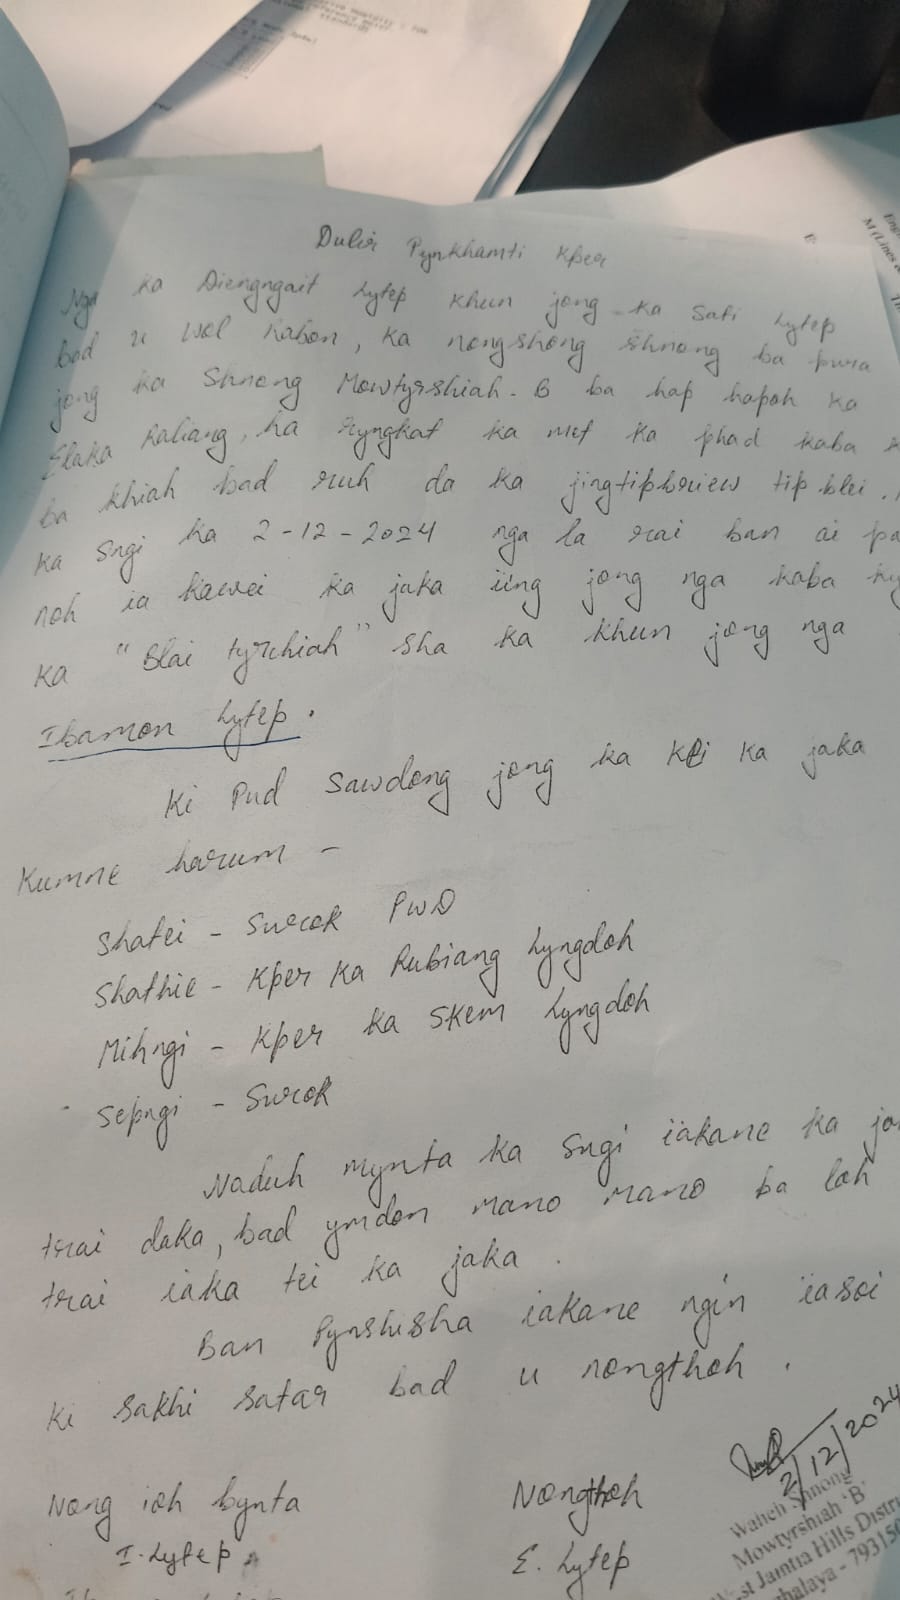 Dulir Pynkhamti Kper
Nga ka Diengngait Lytep khun jong ka Sati Lytep
bad u Wel Rabon, ka nongshong shnong ba pura
jong ka Shnong Mowtyrshiah-B ba hap hapoh ka
Elaka Raliang, ha ryngkat ka met ka phad kaba
ba khiah bad ruh da ka jingtipbriew tip blei.
ka sngi ka 2-12-2024 nga la rai ban ai
noh ia kawei ka jaka iing jong nga kaba
ka "Blai tyrchiah" sha ka khun jong nga
Ibamon Lytep.
Ki Pud sawdong jong ka Kei ka jaka
Kumne harum -
Shatei - Surok PWD
Shathie - Kper ka Rubiang Lyngdoh
Mihngi - Kper ka Skem Lyngdoh
Sepngi - Surok
Naduh mynta ka sngi iakane ka
trai daka, bad ymdon mano mano ba lah
trai iaka tei ka jaka.
Ban Pynshisha iakane ngin iasoi
ki sakhi satar bad u nongthoh.
Nong ioh bynta Nongthoh
I. Lytep E. Lytep
2/12/2024
Waheh Shnong
Mowtyrshiah 'B'
Jaintia Hills